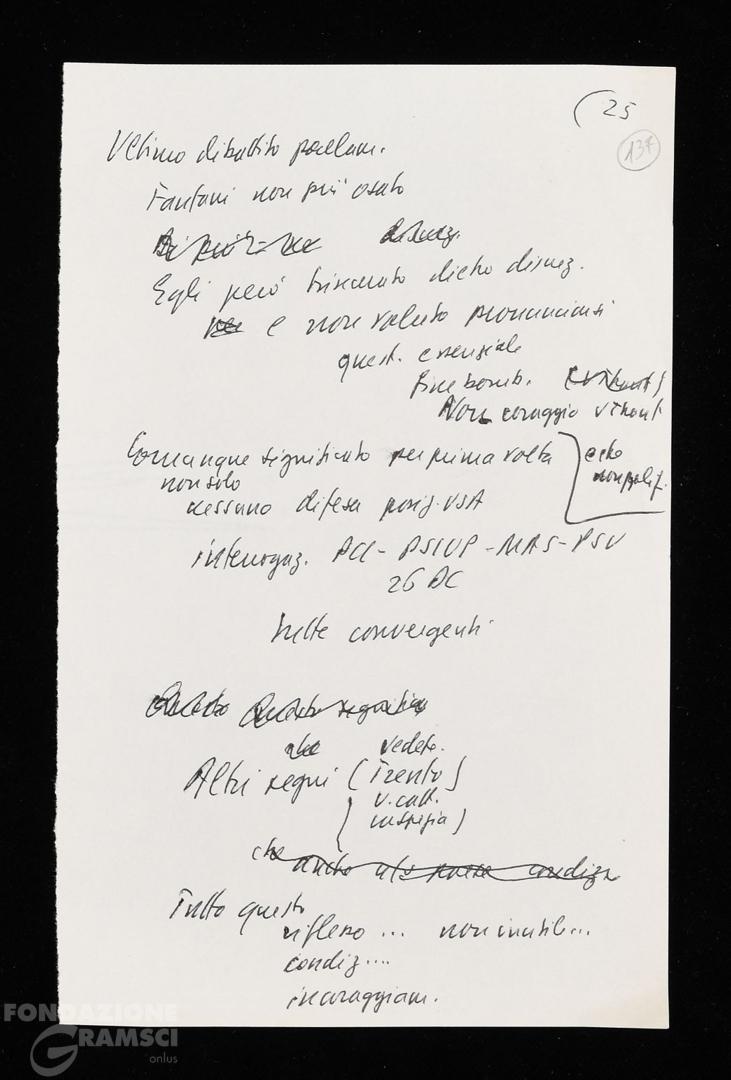 (25
137
Ultimo dibattito parlam.
Fanfani non più osato
Di più
Egli però trincerato dietro disuz.
e non voluto pronunciarsi
quest. essenziale
fine bomb.
Non coraggio U Thant
Comunque significato per prima volta
non solo
nessuno difesa posiz. USA
eco
interrogaz. PCI - PSIUP - MAS - PSU
26 DC
tutte convergenti
Questo Questo significa
che vedete.
Altri segni (Trento)
U. catt.
che anche
Tutto questo
riflesso ... non inutile...
condiz....
incoraggiam.
FONDAZIONE
GRAMSCI
onlus